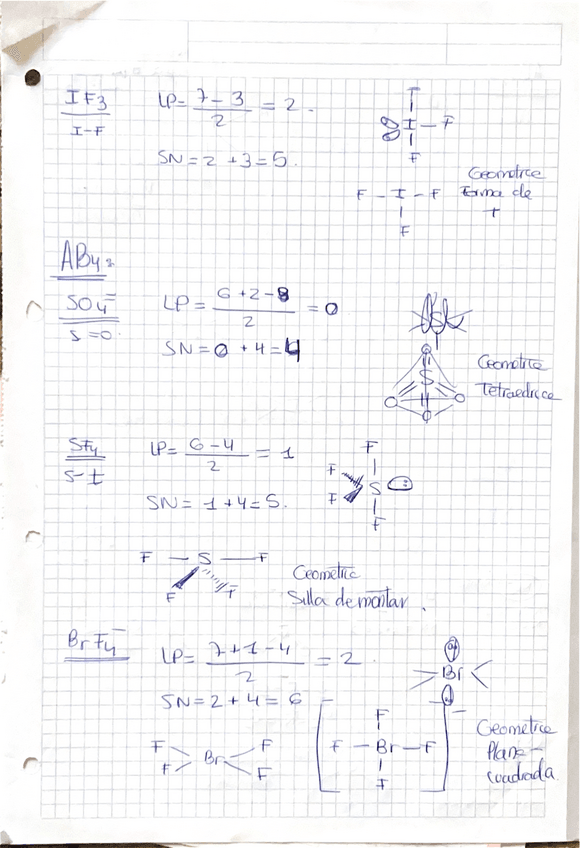 IF3
I-F
LP= 7-3/2 = 2.
SN=2+3=5.
I
I-F
F
F-I-F
F
Geometrica
Forma de
T
AB4:
SO4=
S=O.
LP= 6+2-8/2 = 0
SN=0+4=4
S
O
S
O O
O
Geometrica
Tetraedrica
SF4
S-F
LP= 6-4/2 = 1
SN= 1+4=5.
F
F
S
F
F
F-S-F
F F
Geometric
Silla de montar.
BrF4-
LP= 7+1-4/2 = 2
SN=2+4=6
Br
F F
Br
F F
F
F-Br-F
F
-
Geometrica
Plano-
cuadrada.